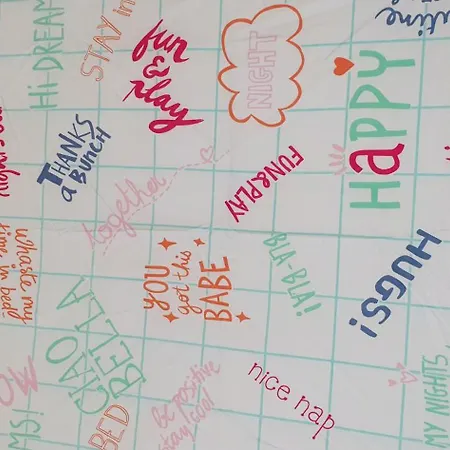 Hi-DREAM
STAY in
fun
&
Play
NIGHT
HAPPY
THANKS
a BUNCH
together
FUN&PLAY
HUGS!
Whaste my
time, in bed!
YOU
got this
BABE
BLA-BLA!
CIAO
BELLA
BED
be positive
stay cool
nice nap
MY NIGHTS